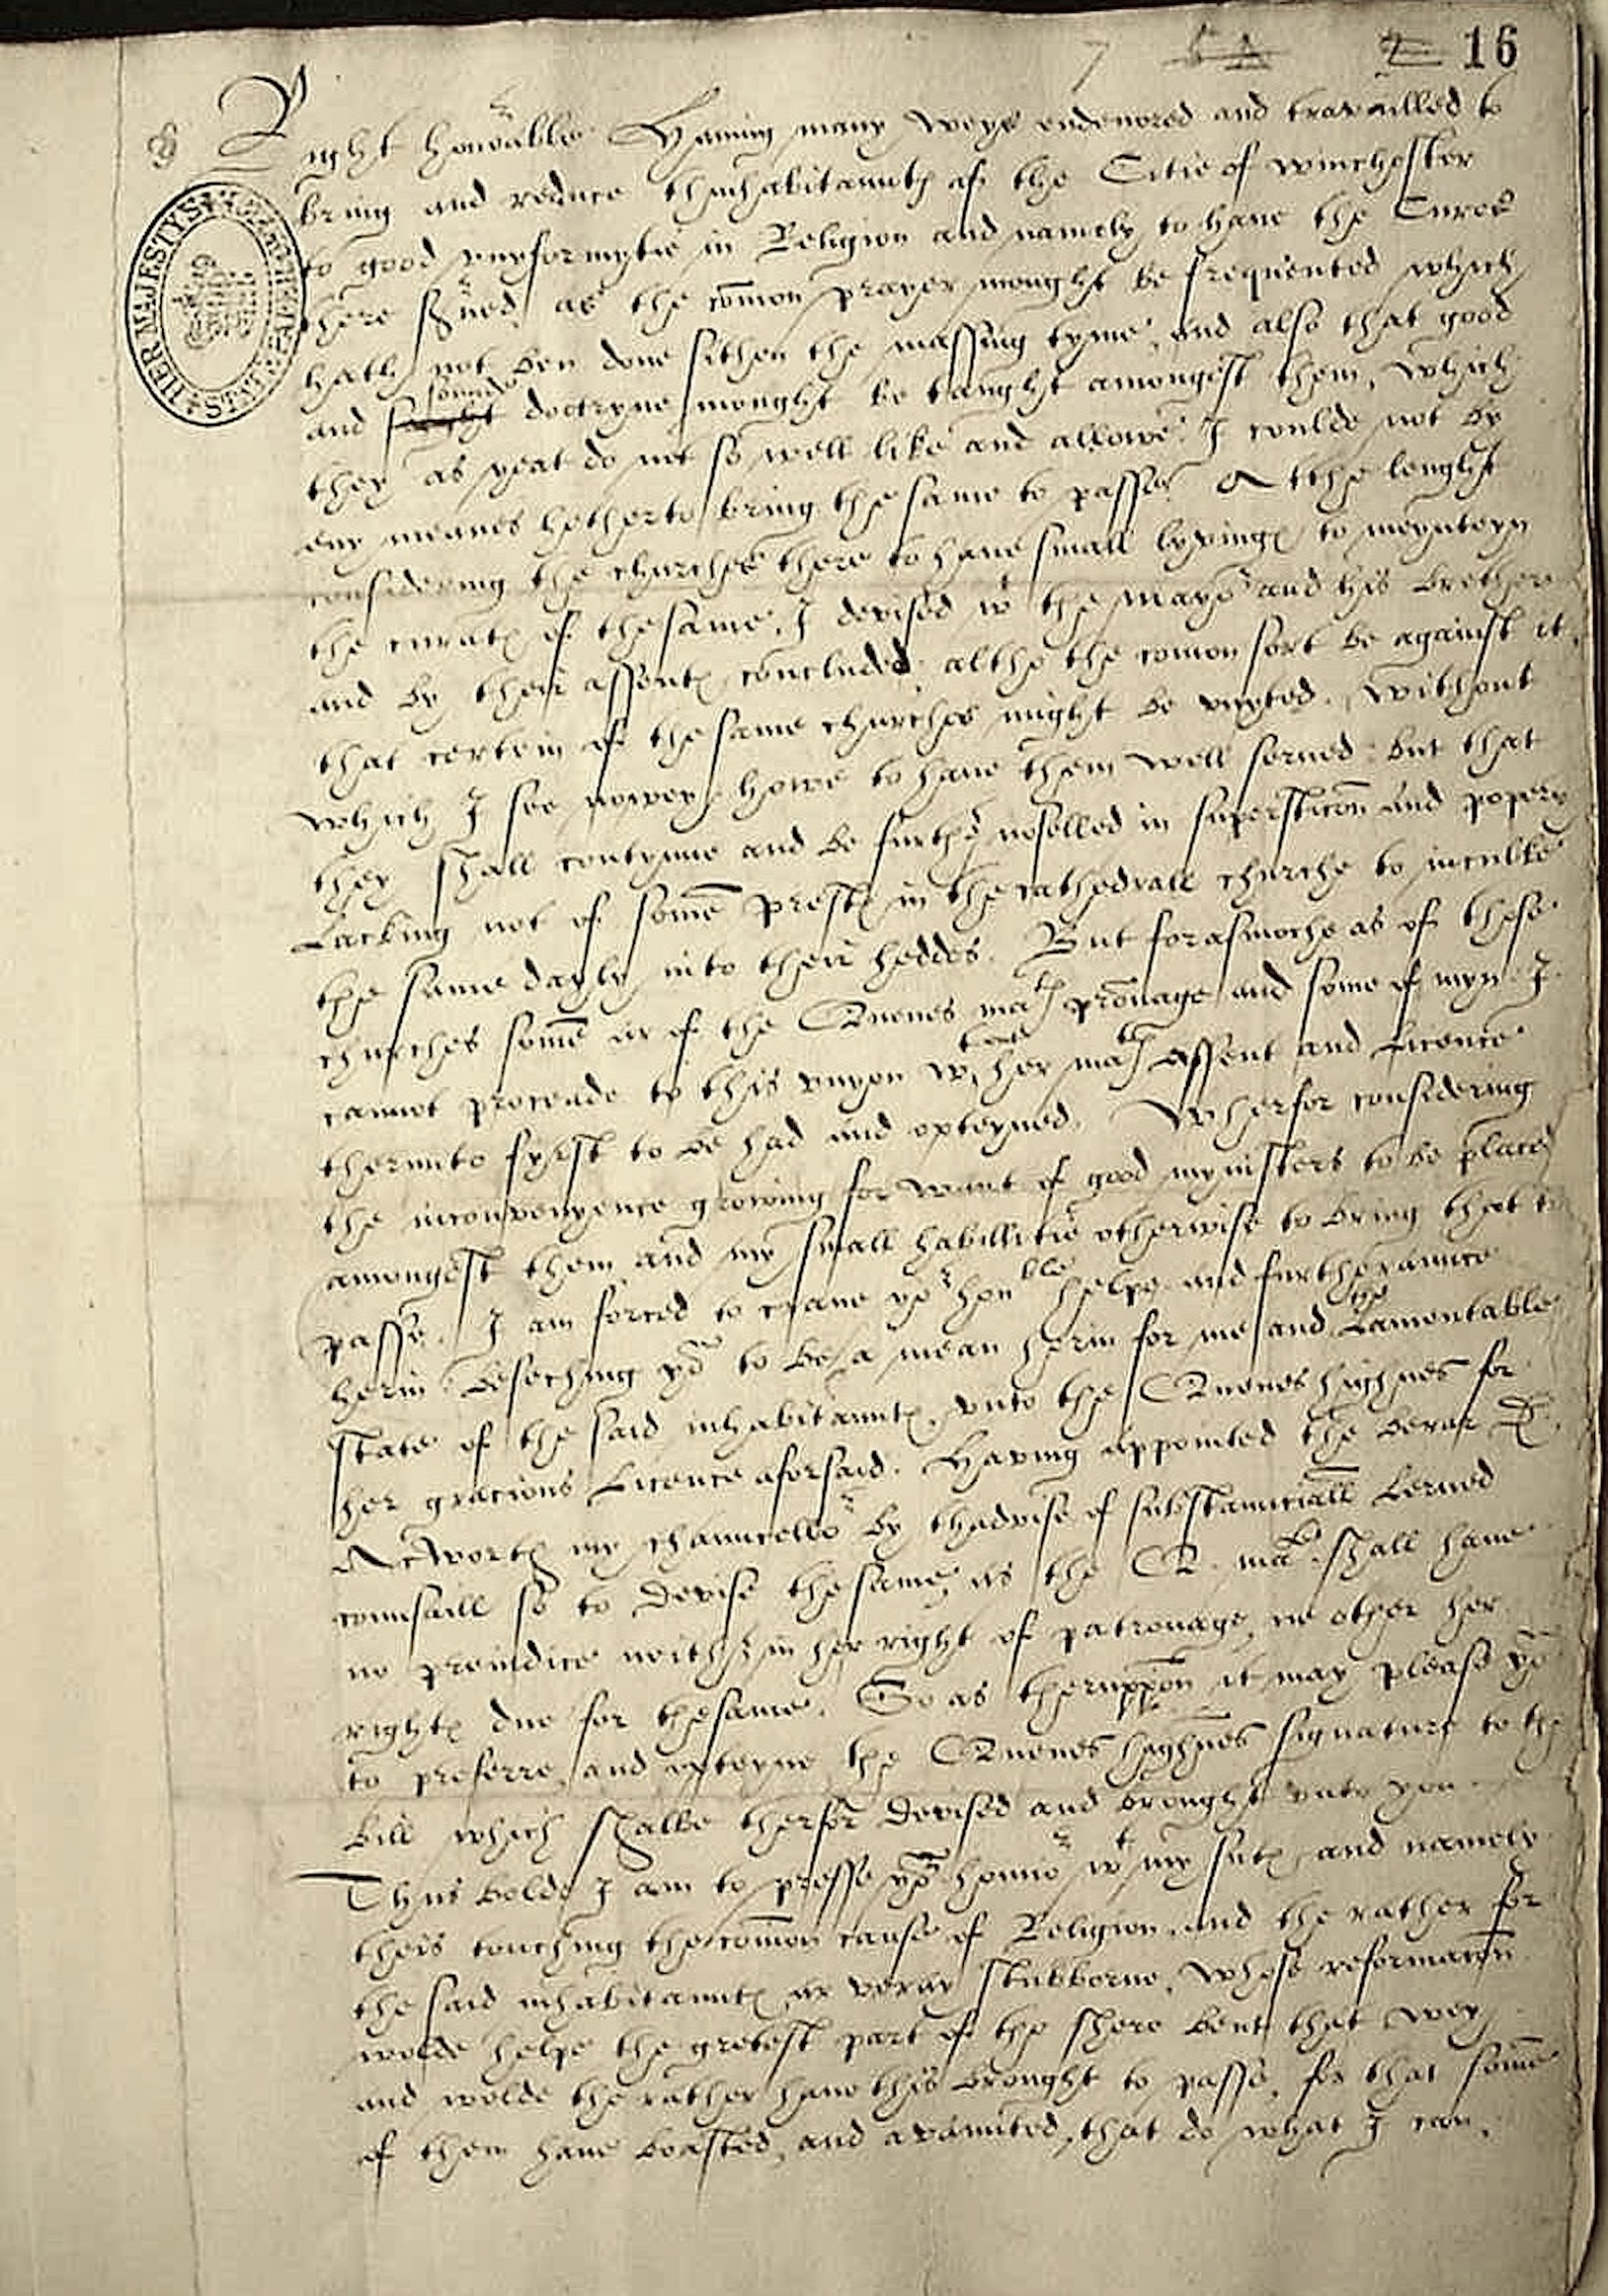 16
HER MAJESTYS STATE PAPER
Right honorable Having many weys endevored and travailled to
bring and reduce thinhabitauntes of the Citie of winchester
to good unyformytie in Religion and namely to have the Cures
there served, as the comon prayer mought be frequented which
hath not ben done sithen the massing tyme, and also that good
and sounde doctryne mought be taught amongest them, which
they as yeat do not so well like and allowe. I coulde not by
eny meanes hetherto bring the same to passe. At the lenght
considering the churches there to have small lyvinges to meynteyn
the curates of the same, I devised wt the Mayor and his brethern
and by their assentes concluded, altho the comon sort be against it,
that certein of the same churches might be unyted. without
which I see nowey howe to have them well served but that
they shall contynue and be further noselled in supersticon and popery
Lacking not of some prestes in the cathedrall churche to inculke
the same dayly into their heddes. But forasmoche as of these
churches some ar of the Quenes maties pronage and some of myn I
cannot proceade to this unyon wtout her maties assent and Licence
therunto fyrst to be had and opteyned. Wherfor considering
the inconvenyence growing for want of good mynisters to be placed
amongest them and my small habillitie otherwise to bring that to
passe. I am forced to crave yor honble helpe and furtheraunce
herin beseching yor to be a mean herin for me and the Lamentable
state of the said inhabitauntes, unto the Quenes highnes for
her gracious Licence aforsaid. Having appointed the berar D.
Acworth my chauncellor by thadvise of substanciall Lerned
counsaill so to devise the same, as the Q. matie shall have
no preiudice neither in her right of patronage, ne other her
rightes due for the same. So as theruppon it may please yor
to preferre and opteyne the Quenes highnes signature to the
bill which shalbe therfor devised and brought unto you.
Thus bolde I am to presse yor honnor wt my sutes and namely
theis touching the comon cause of Religion, and the rather for
the said inhabitauntes ar veray stubborne, whose reformacon
wolde helpe the gretest part of the shere bent that wey
and wolde the rather have this brought to passe, for that some
of them have boasted, and avaunted, that do what I can,